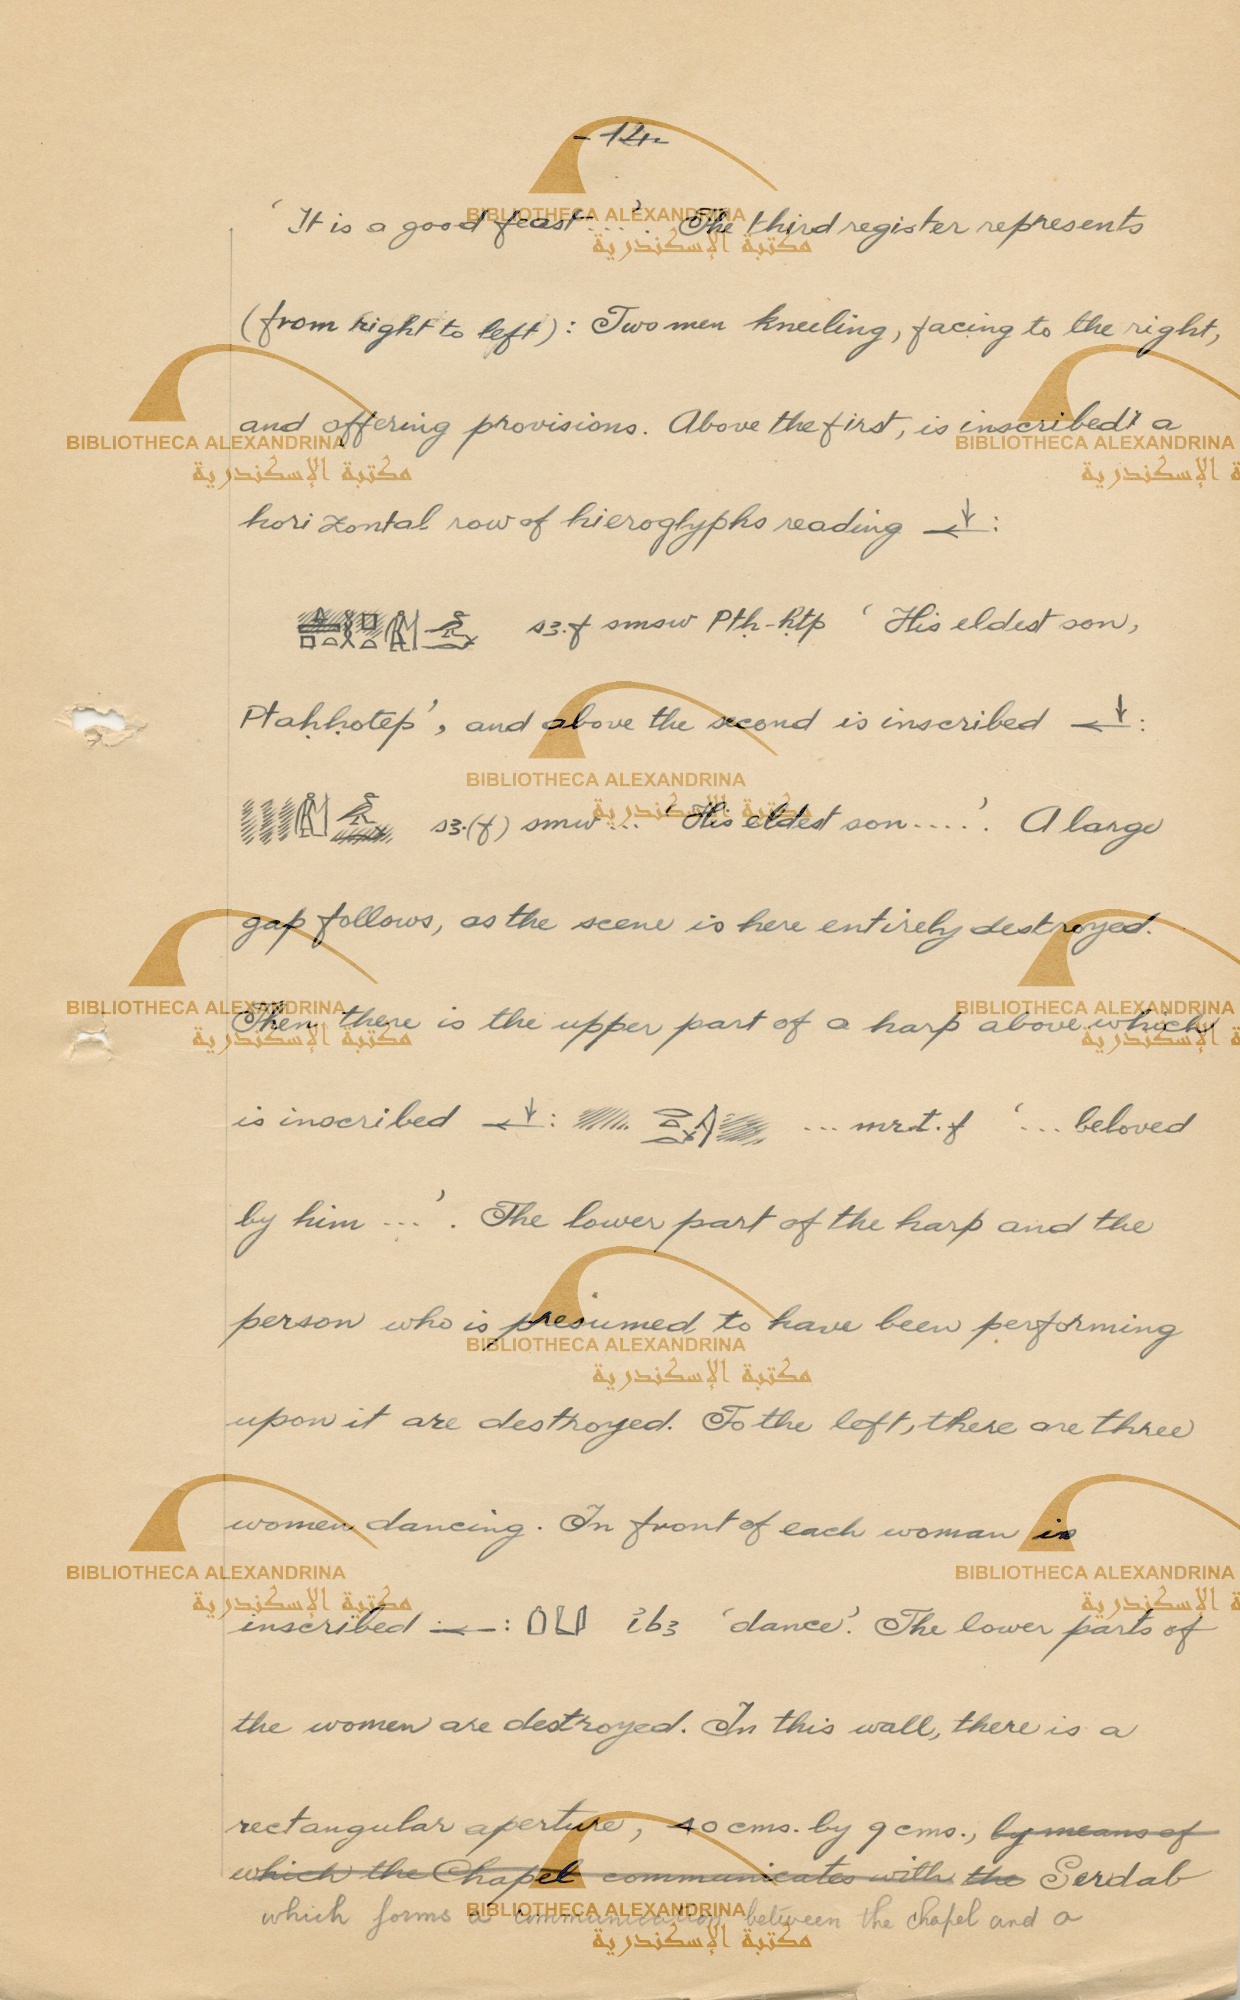 - 14 -
‘ It is a good feast . . . . ’ The third register represents
(from right to left) : Two men kneeling, facing to the right,
and offering provisions. Above the first, is inscribed a
horizontal row of hieroglyphs reading ←↓ :
sȝ.f smsw Ptḥ-ḥtp ‘ His eldest son,
Ptaḥḥotep ’, and above the second is inscribed ←↓ :
sȝ.(f) smw ... ‘ His eldest son .... ’. A large
gap follows, as the scene is here entirely destroyed.
Then there is the upper part of a harp above which
is inscribed ←↓ : ... mrt.f ‘ ... beloved
by him ... ’. The lower part of the harp and the
person who is presumed to have been performing
upon it are destroyed. To the left, there are three
women dancing. In front of each woman is
inscribed ← : ỉbȝ ‘dance’. The lower parts of
the women are destroyed. In this wall, there is a
rectangular aperture, 40 cms. by 9 cms., by means of
which the Chapel communicates with the Serdab
which forms a communication between the chapel and a
BIBLIOTHECA ALEXANDRINA
مكتبة الإسكندرية